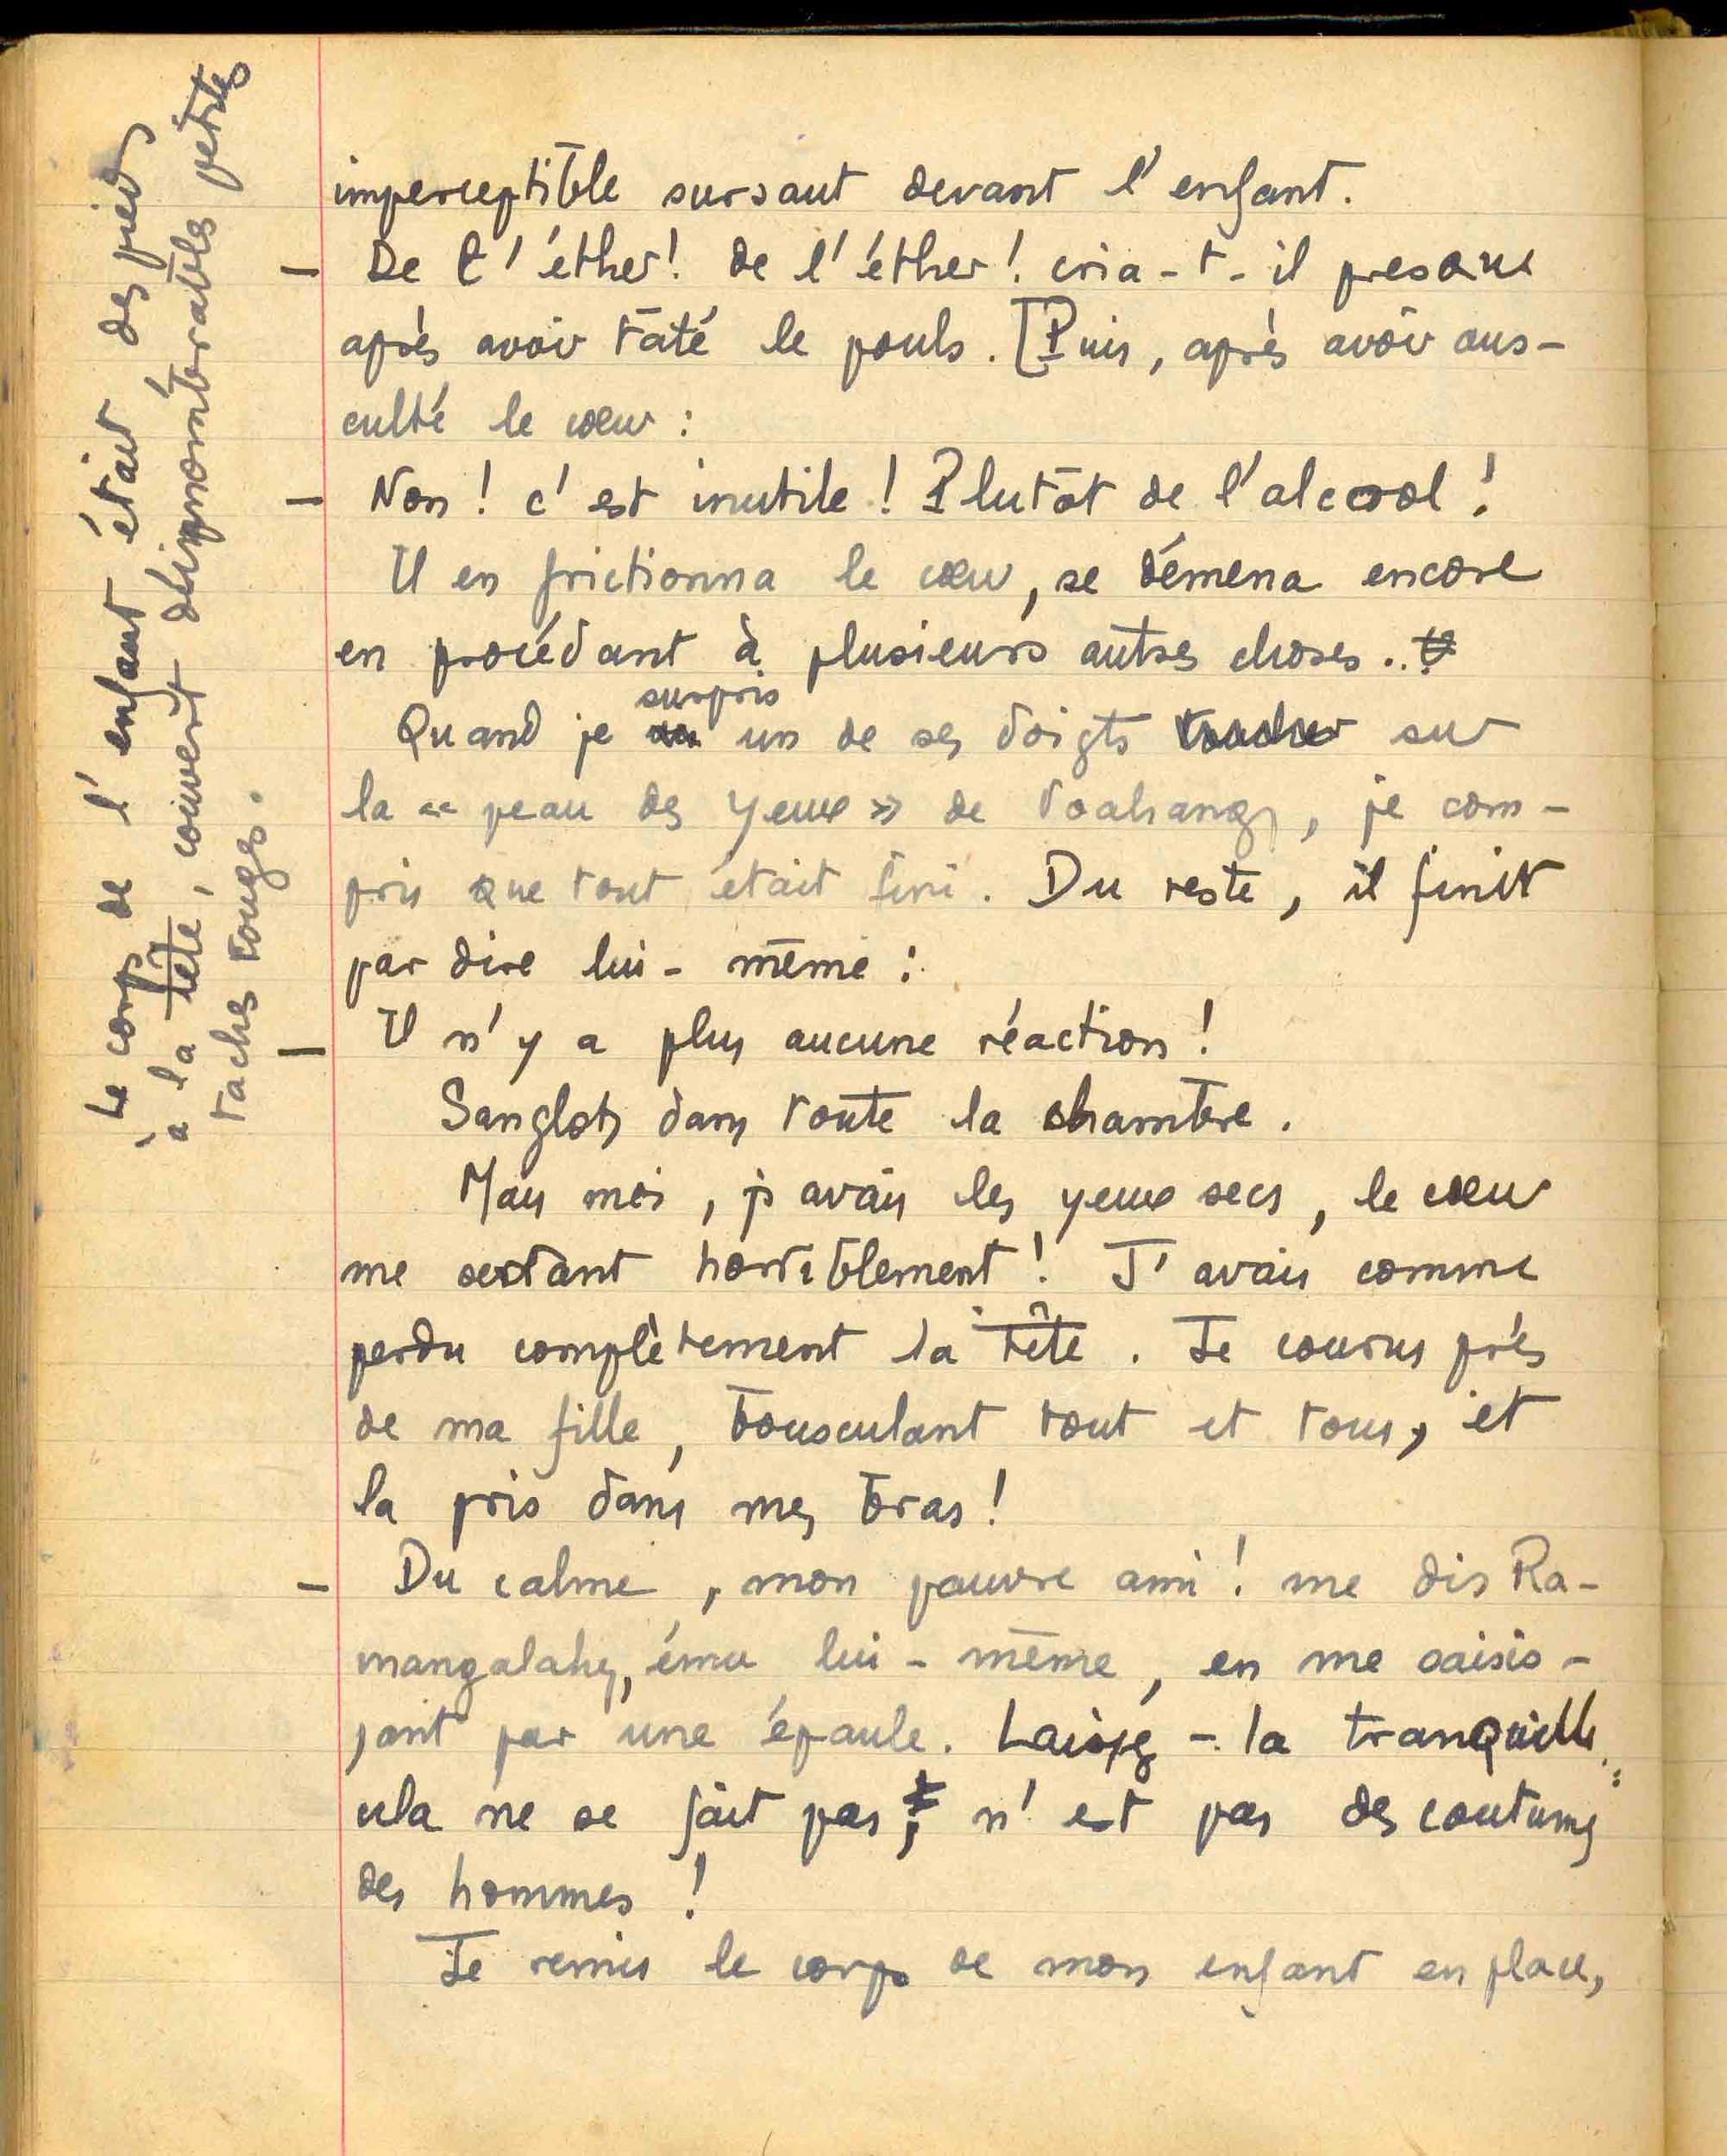 imperceptible sursaut devant l'enfant.
— De l'éther! de l'éther! cria-t-il presque
après avoir tâté le pouls. [Puis, après avoir aus-
culté le cœur :
— Non! c'est inutile! Plutôt de l'alcool!
Il en frictionna le cœur, se démena encore
en procédant à plusieurs autres choses..
Quand je surpris un de ses doigts toucher sur
la « peau des yeux » de Voahangy, je com-
pris que tout était fini. Du reste, il finit
par dire lui-même :
— Il n'y a plus aucune réaction!
Sanglots dans toute la chambre.
Mais moi, j'avais les yeux secs, le cœur
me sextant horriblement! J'avais comme
perdu complètement la tête. Je courus près
de ma fille, bousculant tout et tous, et
la pris dans mes bras!
— Du calme, mon pauvre ami! me dis Ra-
mangalahy, ému lui-même, en me saisis-
sant par une épaule. Laissez-la tranquille :
cela ne se fait pas; n'est pas des coutumes
des hommes!
Je remis le corps de mon enfant en place,
Le corps de l'enfant était des pieds
à la tête, couvert d'innombrables petites
taches rouges.